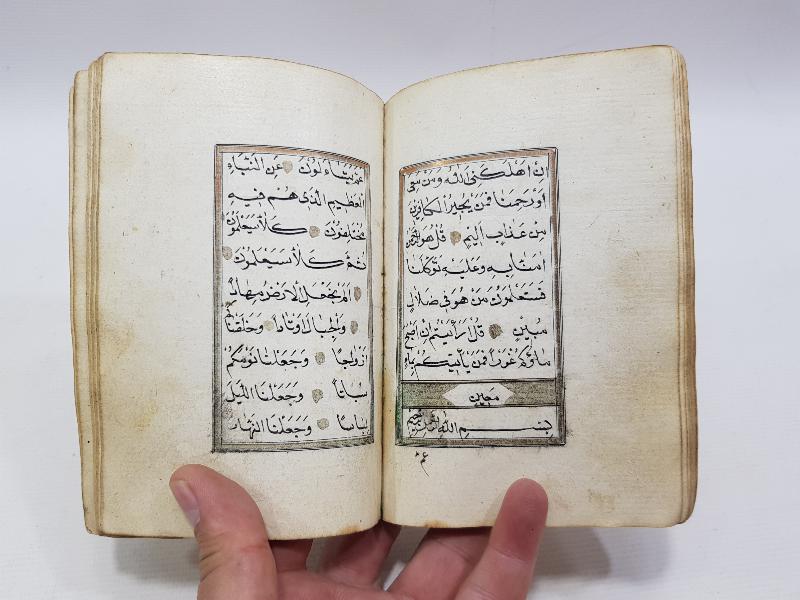 اِنْ اَهْلَكَنِىَ اللّٰهُ وَمَنْ مَعِىَ
اَوْ رَحِمَنَا فَمَنْ يُجِيرُ الْكَافِرِينَ
مِنْ عَذَابٍ اَلِيمٍ قُلْ هُوَ الرَّحْمٰنُ
اٰمَنَّا بِهِ وَعَلَيْهِ تَوَكَّلْنَا
فَسَتَعْلَمُونَ مَنْ هُوَ فِى ضَلَالٍ
مُبِينٍ قُلْ اَرَاَيْتُمْ اِنْ اَصْبَحَ
مَاؤُكُمْ غَوْرًا فَمَنْ يَأْتِيكُمْ بِمَاءٍ
مَعِينٍ
بِسْمِ اللّٰهِ الرَّحْمٰنِ الرَّحِيمِ
عم
عَمَّ يَتَسَاءَلُونَ عَنِ النَّبَاءِ
الْعَظِيمِ الَّذِى هُمْ فِيهِ
مُخْتَلِفُونَ كَلَّا سَيَعْلَمُونَ
ثُمَّ كَلَّا سَيَعْلَمُونَ
اَلَمْ نَجْعَلِ الْاَرْضَ مِهَادًا
وَالْجِبَالَ اَوْتَادًا وَخَلَقْنَاكُمْ
اَزْوَاجًا وَجَعَلْنَا نَوْمَكُمْ
سُبَاتًا وَجَعَلْنَا اللَّيْلَ
لِبَاسًا وَجَعَلْنَا النَّهَارَ